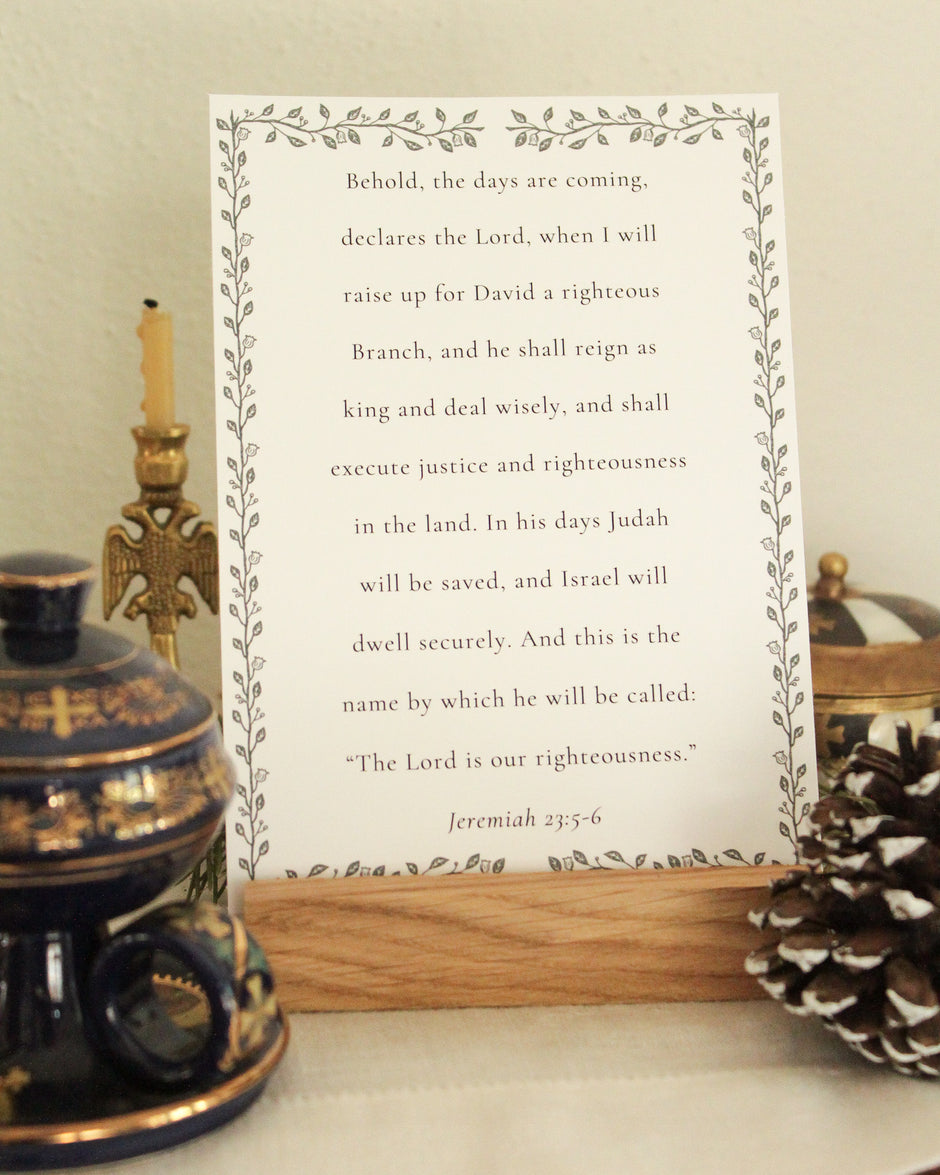 Behold, the days are coming,
declares the Lord, when I will
raise up for David a righteous
Branch, and he shall reign as
king and deal wisely, and shall
execute justice and righteousness
in the land. In his days Judah
will be saved, and Israel will
dwell securely. And this is the
name by which he will be called:
“The Lord is our righteousness.”
Jeremiah 23:5-6